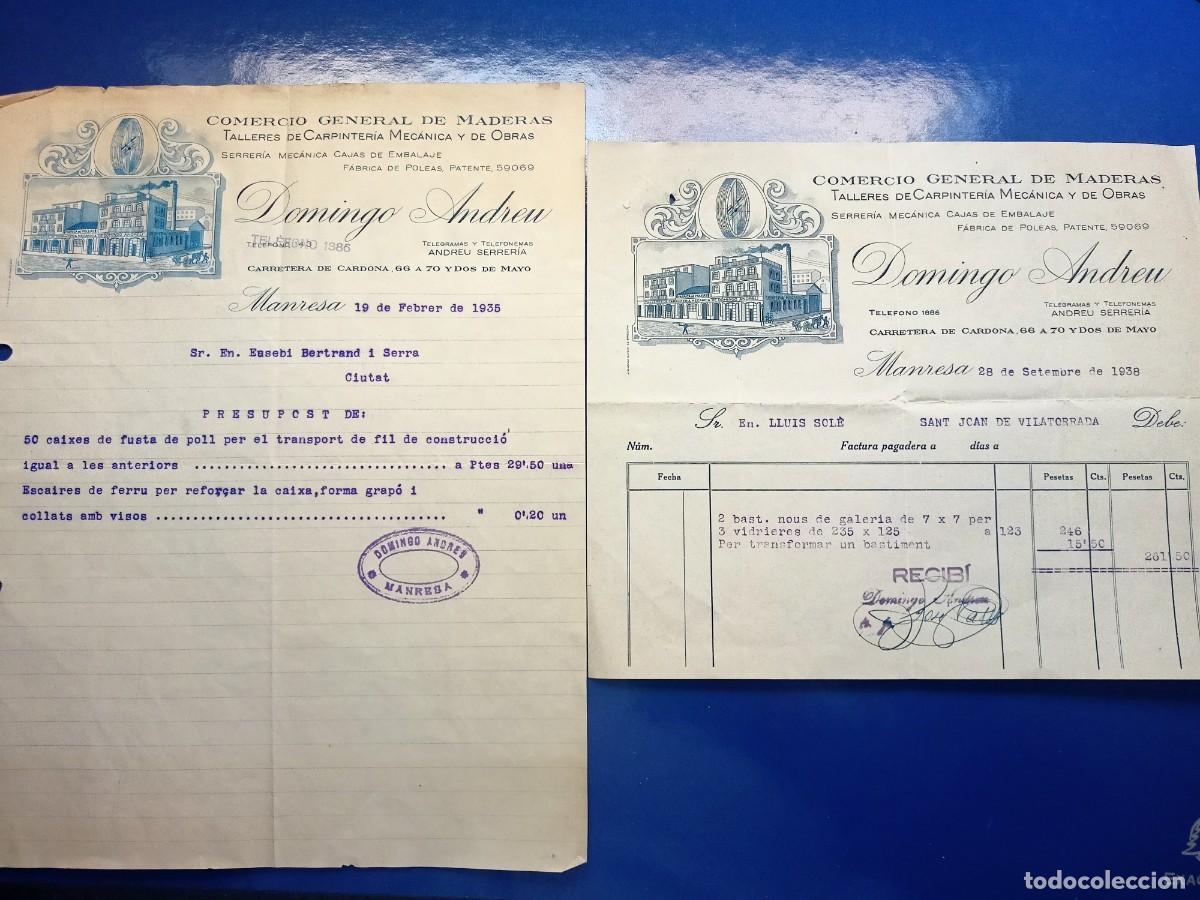 COMERCIO GENERAL DE MADERAS
TALLERES DE CARPINTERÍA MECÁNICA Y DE OBRAS
SERRERÍA MECÁNICA CAJAS DE EMBALAJE
FÁBRICA DE POLEAS, PATENTE, 59069
Domingo Andreu
TELEFONO 1886
TELEGRAMAS Y TELEFONEMAS
ANDREU SERRERÍA
CARRETERA DE CARDONA, 66 A 70 Y DOS DE MAYO
Manresa 19 de Febrer de 1935
Sr. En. Eusebi Bertrand i Serra
Ciutat
PRESUPOST DE:
50 caixes de fusta de poll per el transport de fil de construcció
igual a les anteriors .................................. a Ptes 29'50 una
Escaires de ferru per reforçar la caixa,forma grapó i
collats amb visos ....................................... " 0'20 un
DOMINGO ANDREU
MANRESA
COMERCIO GENERAL DE MADERAS
TALLERES DE CARPINTERÍA MECÁNICA Y DE OBRAS
SERRERÍA MECÁNICA CAJAS DE EMBALAJE
FÁBRICA DE POLEAS, PATENTE, 59069
Domingo Andreu
TELEFONO 1886
TELEGRAMAS Y TELEFONEMAS
ANDREU SERRERÍA
CARRETERA DE CARDONA, 66 A 70 Y DOS DE MAYO
Manresa 28 de Setembre de 1938
Sr. En. LLUIS SOLÈ SANT JOAN DE VILATORRADA Debe:
Núm. Factura pagadera a días a
Fecha Pesetas Cts. Pesetas Cts.
2 bast. nous de galeria de 7 x 7 per
3 vidrieres de 235 x 125 a 123 246
Per transformar un bastiment 15'50
261 50
RECIBÍ
Domingo Andreu
todocoleccion